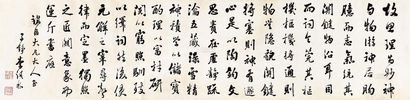 故思理為妙神
與物游神居胸
臆而志氣統其
關鍵物沿耳目
而辭令管其樞
機樞機方通則
物無隱貌關鍵
將塞則神有遯
心是以陶鈞文
思貴在虛靜疏
瀹五藏澡雪精
神積學以儲寶
酌理以富才研
閱以窮照馴致
以懌詞然後使
元解之宰尋聲
律而定墨獨照
之匠闚意象而
運斤書應
大兄大人
子靜李